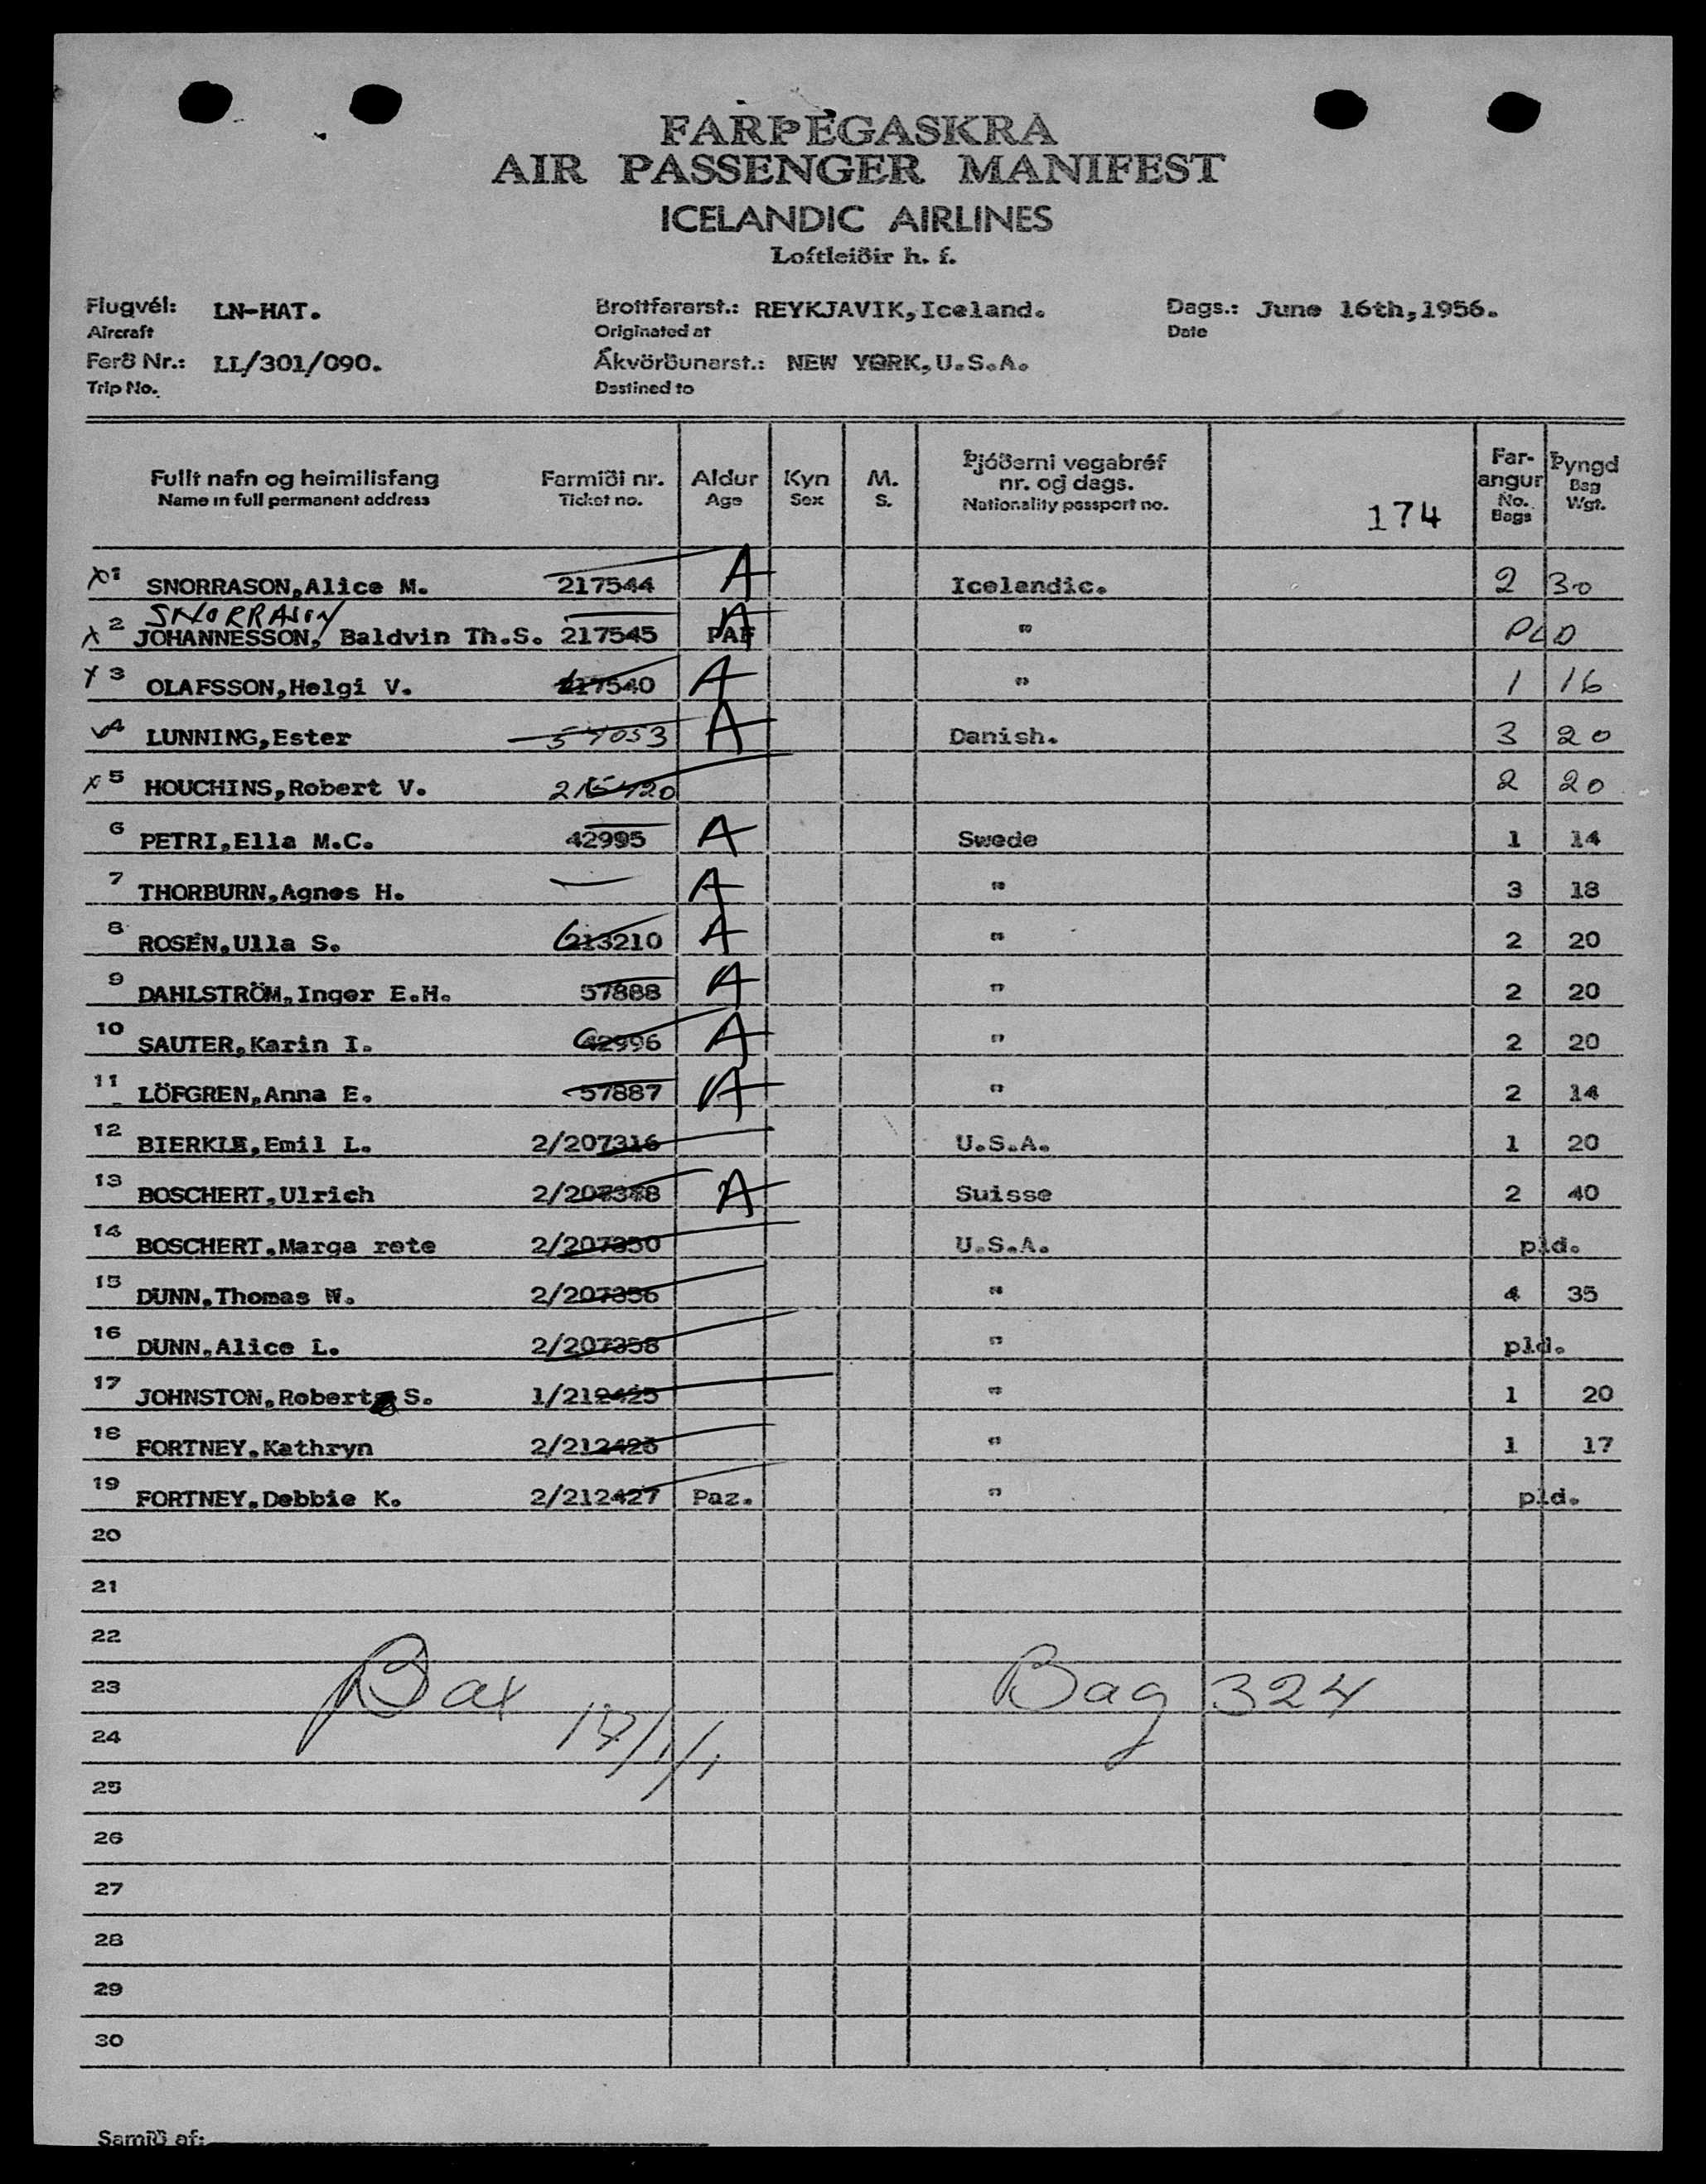 FARÞEGASKRÁ
AIR PASSENGER MANIFEST
ICELANDIC AIRLINES
Loftleiðir h. f.
Flugvél: LN-HAT. Brottfararst.: REYKJAVIK, Iceland. Dags.: June 16th, 1956.
Aircraft Originated at Date
Ferð Nr.: LL/301/090. Ákvörðunarst.: NEW YORK, U.S.A.
Trip No. Destined to
Fullt nafn og heimilisfang Farmiði nr. Aldur Kyn M. Þjóðerni vegabréf nr. og dags. Far-angur Þyngd
Name in full permanent address Ticket no. Age Sex S. Nationality passport no. 174 No. Bags Bag Wgt.
1 SNORRASON, Alice M. 217544 A Icelandic. 2 30
SNORRASON
2 JOHANNESSON, Baldvin Th.S. 217545 A " PLD
3 OLAFSSON, Helgi V. 217540 A " 1 16
4 LUNNING, Ester 57053 A Danish. 3 20
5 HOUCHINS, Robert V. 2 20
6 PETRI, Ella M.C. 42995 A Swede 1 14
7 THORBURN, Agnes H. — A " 3 18
8 ROSÉN, Ulla S. 213210 A " 2 20
9 DAHLSTRÖM, Inger E.H. 57888 A " 2 20
10 SAUTER, Karin I. 42996 A " 2 20
11 LÖFGREN, Anna E. 57887 A " 2 14
12 BIERKLE, Emil L. 2/207316 U.S.A. 1 20
13 BOSCHERT, Ulrich A Suisse 2 40
14 BOSCHERT, Marga rete 2/207350 U.S.A. pld.
15 DUNN, Thomas W. 2/207356 " 4 35
16 DUNN, Alice L. 2/207358 " pld.
17 JOHNSTON, Robert S. 1/212425 " 1 20
18 FORTNEY, Kathryn 2/212426 " 1 17
19 FORTNEY, Debbie K. 2/212427 Paz. " pld.
20
21
22
23 Pax Bag 324
24 17/1/1
25
26
27
28
29
30
Samið af: